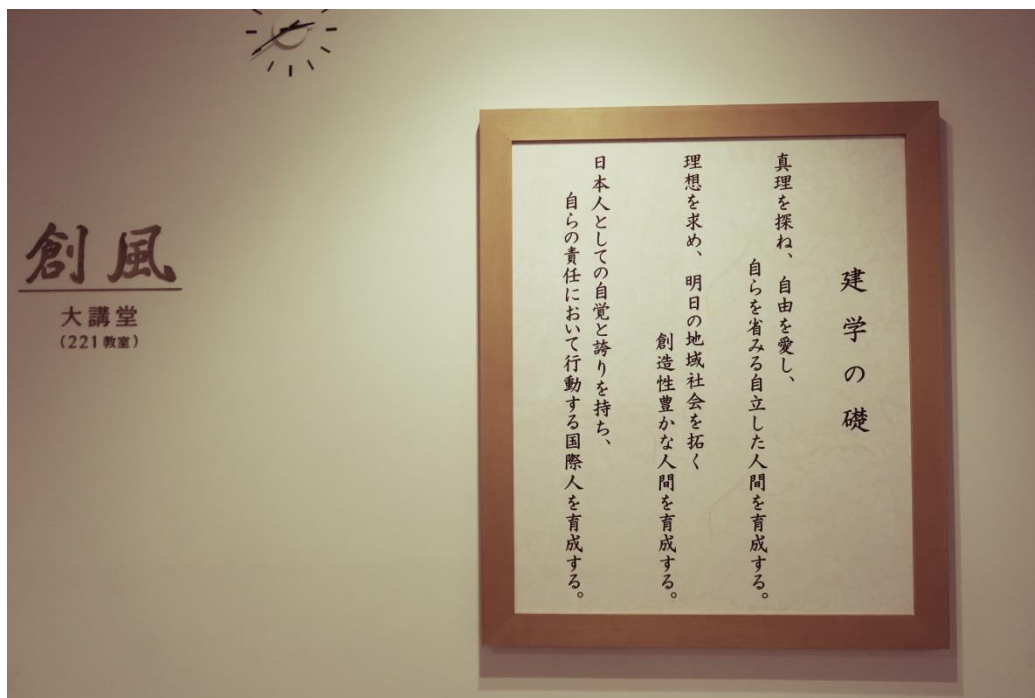 建学の礎
真理を探ね、自由を愛し、
自らを省みる自立した人間を育成する。
理想を求め、明日の地域社会を拓く
創造性豊かな人間を育成する。
日本人としての自覚と誇りを持ち、
自らの責任において行動する国際人を育成する。
創風
大講堂
(221教室)